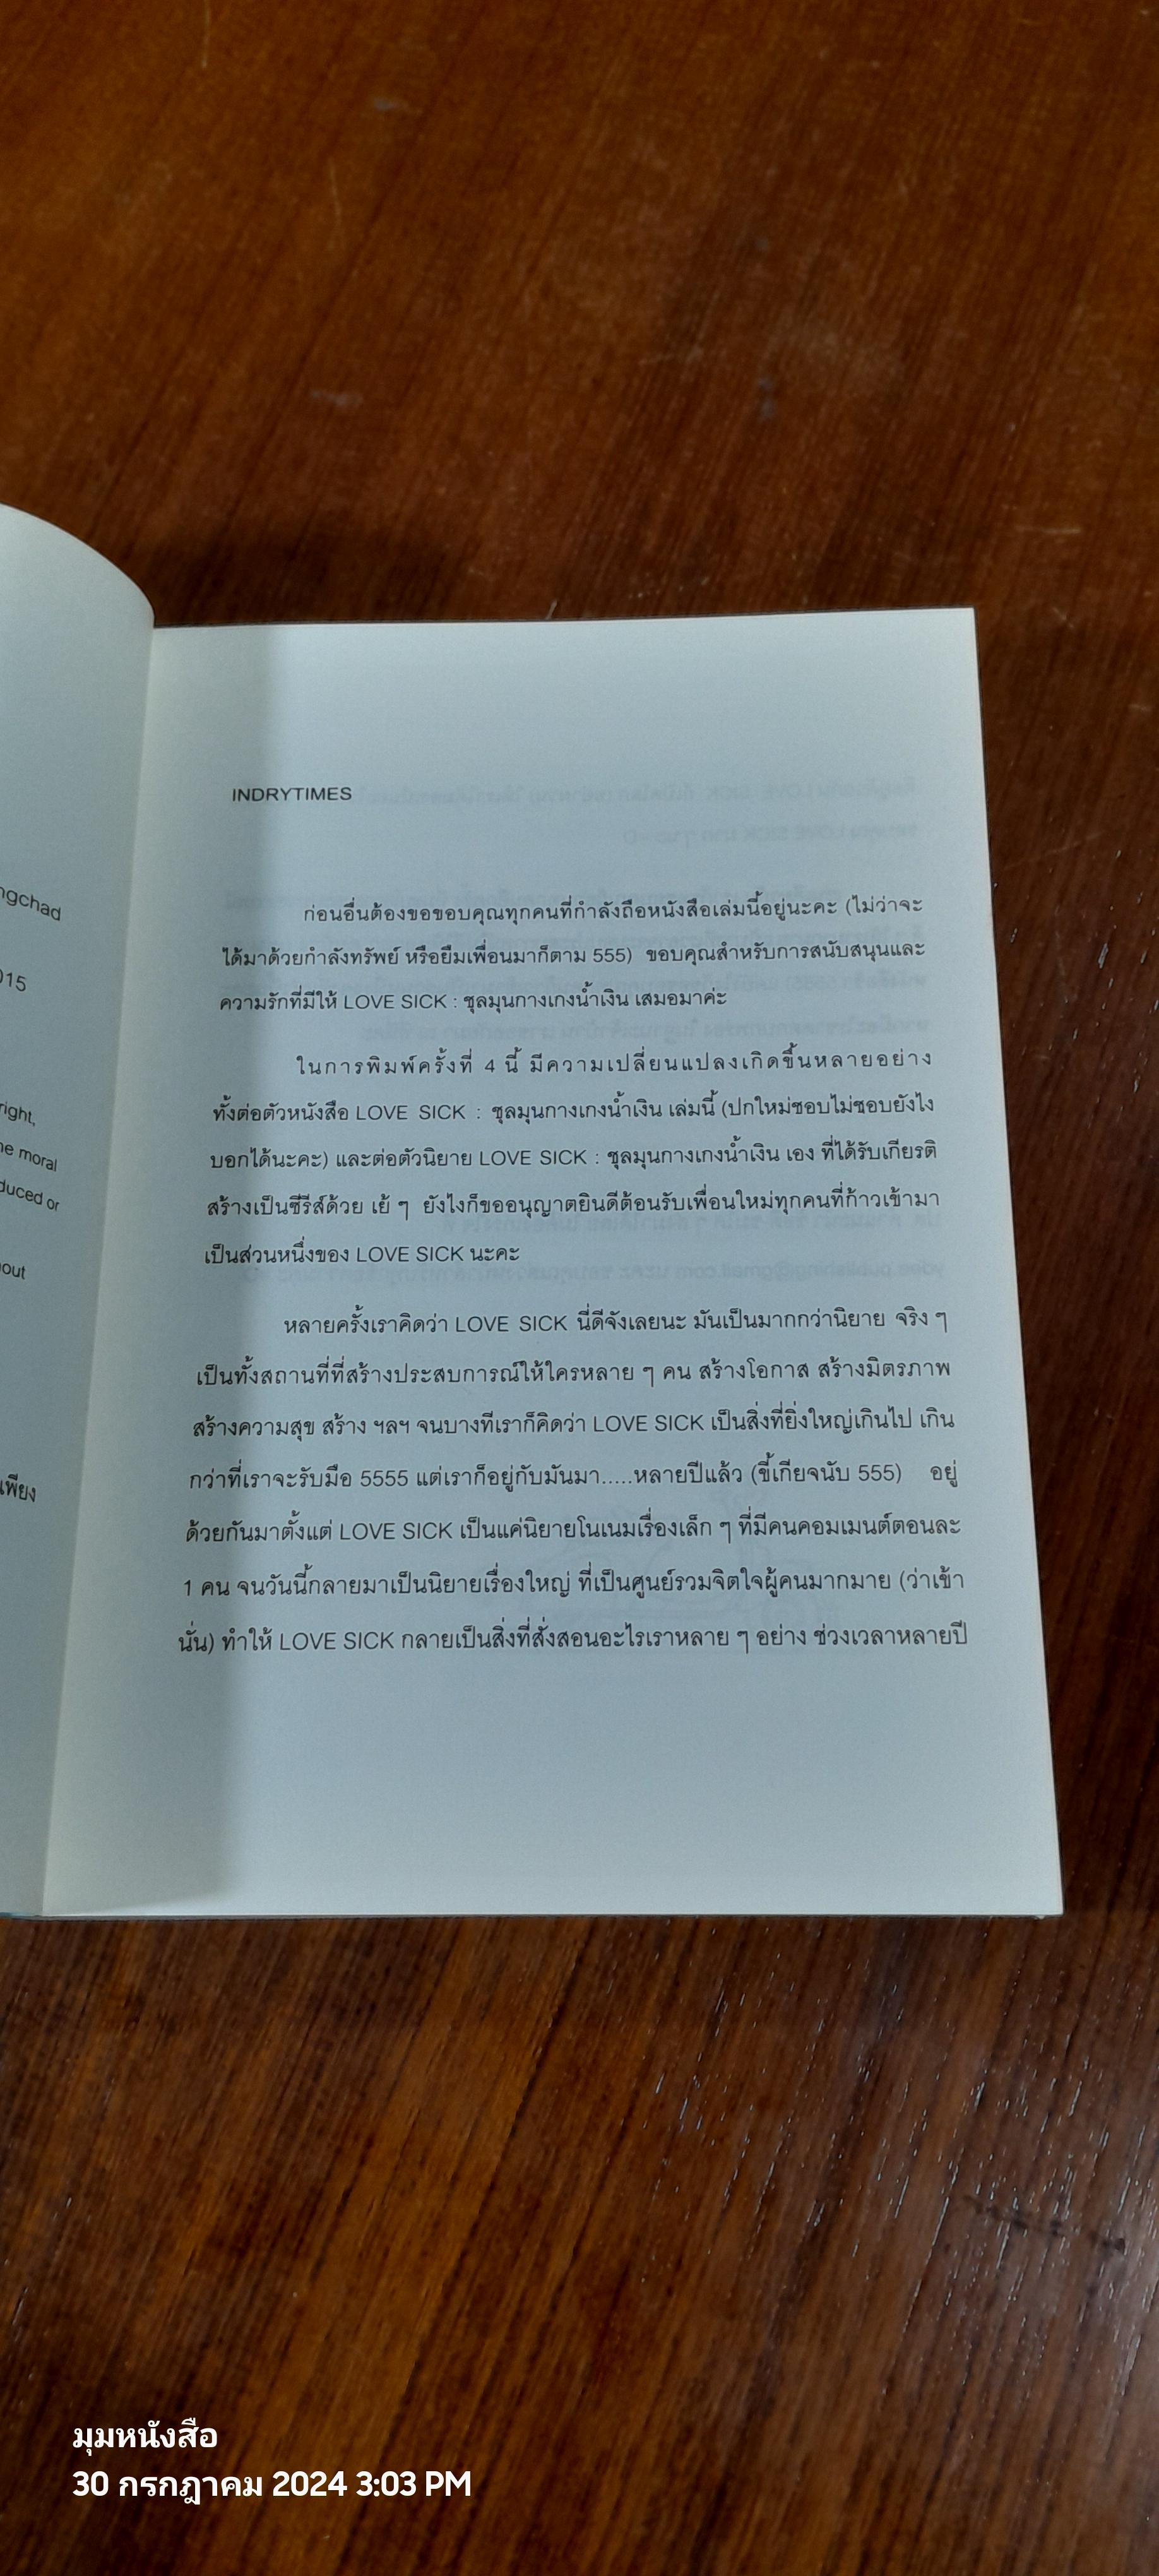 ngchad
015
right,
ne moral
duced or
out
เพียง
INDRYTIMES
ก่อนอื่นต้องขอขอบคุณทุกคนที่กำลังถือหนังสือเล่มนี้อยู่นะคะ (ไม่ว่าจะ
ได้มาด้วยกำลังทรัพย์ หรือยืมเพื่อนมาก็ตาม 555) ขอบคุณสำหรับการสนับสนุนและ
ความรักที่มีให้ LOVE SICK : ชุลมุนกางเกงน้ำเงิน เสมอมาค่ะ
ในการพิมพ์ครั้งที่ 4 นี้ มีความเปลี่ยนแปลงเกิดขึ้นหลายอย่าง
ทั้งต่อตัวหนังสือ LOVE SICK : ชุลมุนกางเกงน้ำเงิน เล่มนี้ (ปกใหม่ชอบไม่ชอบยังไง
บอกได้นะคะ) และต่อตัวนิยาย LOVE SICK : ชุลมุนกางเกงน้ำเงิน เอง ที่ได้รับเกียรติ
สร้างเป็นซีรีส์ด้วย เย้ ๆ ยังไงก็ขออนุญาตยินดีต้อนรับเพื่อนใหม่ทุกคนที่ก้าวเข้ามา
เป็นส่วนหนึ่งของ LOVE SICK นะคะ
หลายครั้งเราคิดว่า LOVE SICK นี่ดีจังเลยนะ มันเป็นมากกว่านิยาย จริง ๆ
เป็นทั้งสถานที่ที่สร้างประสบการณ์ให้ใครหลาย ๆ คน สร้างโอกาส สร้างมิตรภาพ
สร้างความสุข สร้าง ฯลฯ จนบางทีเราก็คิดว่า LOVE SICK เป็นสิ่งที่ยิ่งใหญ่เกินไป เกิน
กว่าที่เราจะรับมือ 5555 แต่เราก็อยู่กับมันมา.....หลายปีแล้ว (ขี้เกียจนับ 555) อยู่
ด้วยกันมาตั้งแต่ LOVE SICK เป็นแค่นิยายโนเนมเรื่องเล็ก ๆ ที่มีคนคอมเมนต์ตอนละ
1 คน จนวันนี้กลายมาเป็นนิยายเรื่องใหญ่ ที่เป็นศูนย์รวมจิตใจผู้คนมากมาย (ว่าเข้า
นั่น) ทำให้ LOVE SICK กลายเป็นสิ่งที่สั่งสอนอะไรเราหลาย ๆ อย่าง ช่วงเวลาหลายปี
มุมหนังสือ
30 กรกฎาคม 2024 3:03 PM